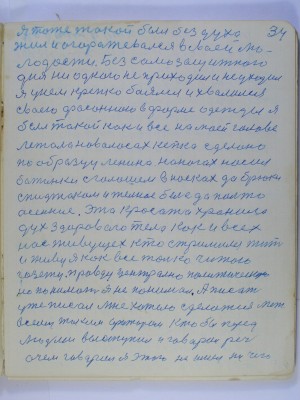 34
Я тоже такой был без духа
жил и огораживался в своей мо-
лодости. Без самозащитного
дня ни одного не приходил и не уходил
Я у нем крепко боялся и хвалился
своею фасонною в форме одеждой я
был такой как и все на моей голове
волосах кепка сделано
по образцу ленина на ногах носил
ботинки с голошем в носках да брюки
с пиджаком и теплое белье да пальто
осенние. Эта красота хранила
дух здорового тела как и всех
нас живущих кто стремился жить
и живу я как все только читою
газету правду центрально политическую
но понимать я не понимал. А писат
уже писал мне хотелось сделатся
всеми таким оратором кто бы перед
людями выступил и говорил реч
о чем говорил я этого не имел но чего